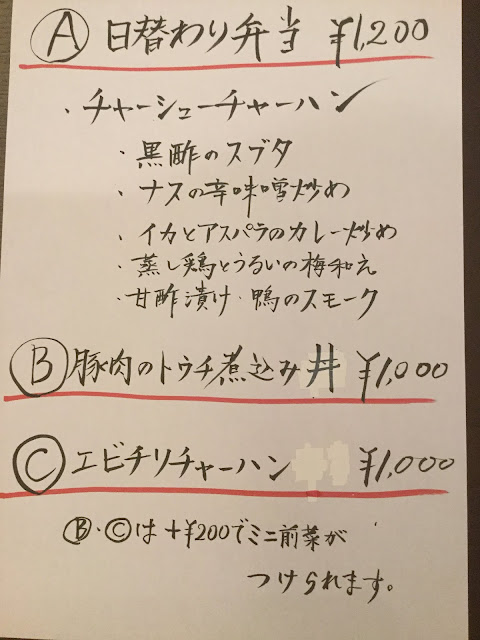 Ⓐ 日替わり弁当 ¥1,200
・チャーシューチャーハン
・黒酢のスブタ
・ナスの辛味噌炒め
・イカとアスパラのカレー炒め
・蒸し鶏とうるいの梅和え
・甘酢漬け・鴨のスモーク
Ⓑ 豚肉のトウチ煮込み丼 ¥1,000
Ⓒ エビチリチャーハン ¥1,000
Ⓑ・Ⓒは+¥200でミニ前菜が
つけられます。